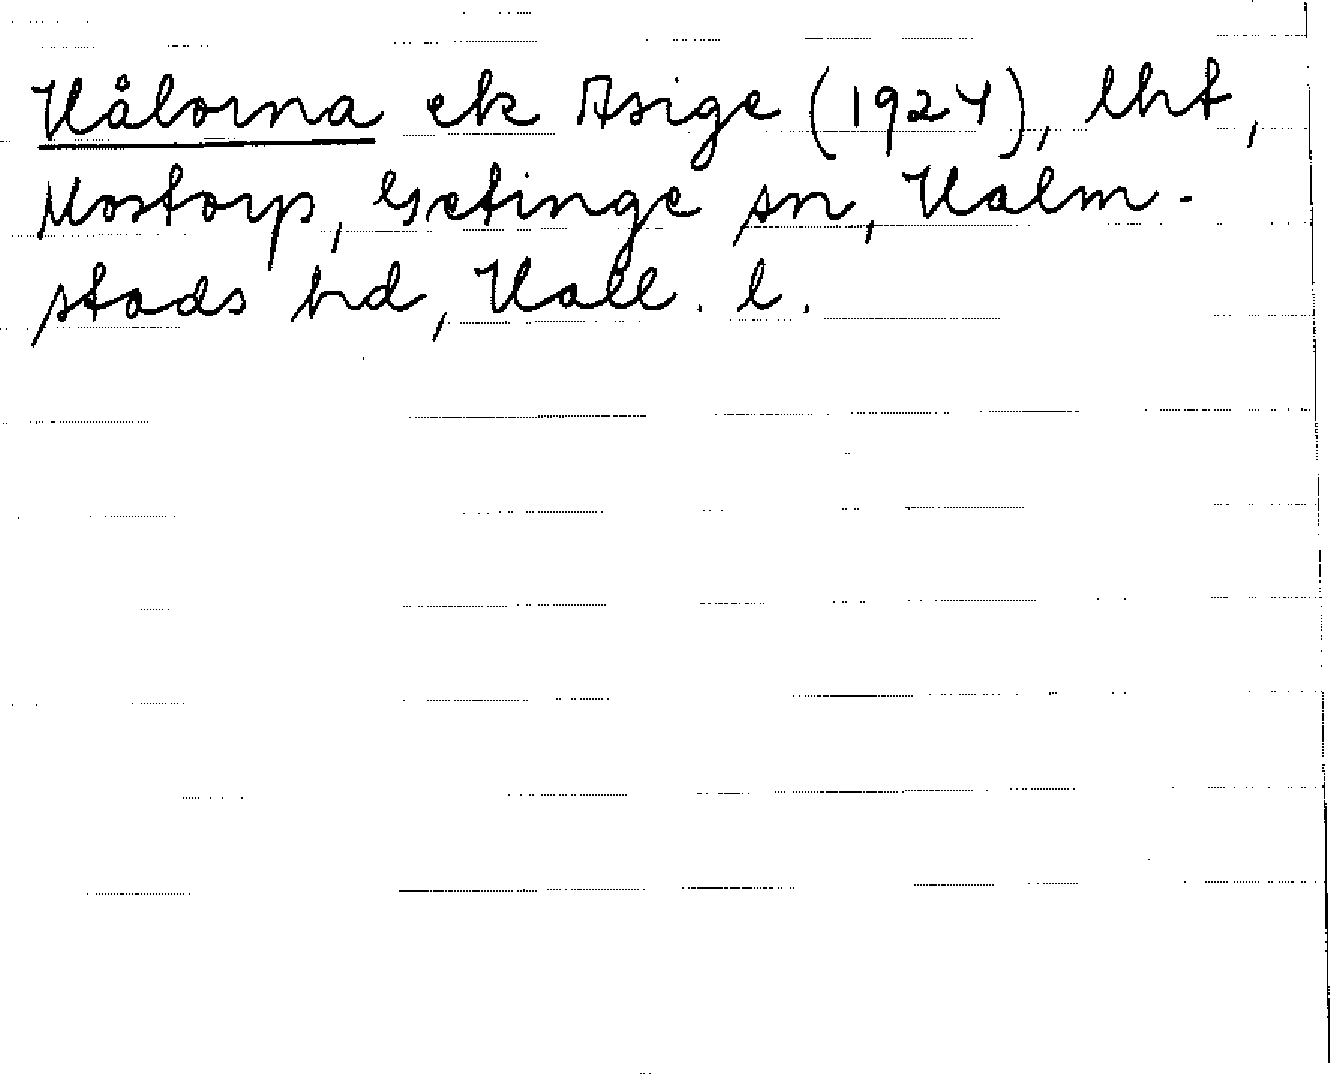 Hålorna ek Asige (1924), lht,
Mostorp, Getinge sn, Halm-
stads hd, Hall. l.